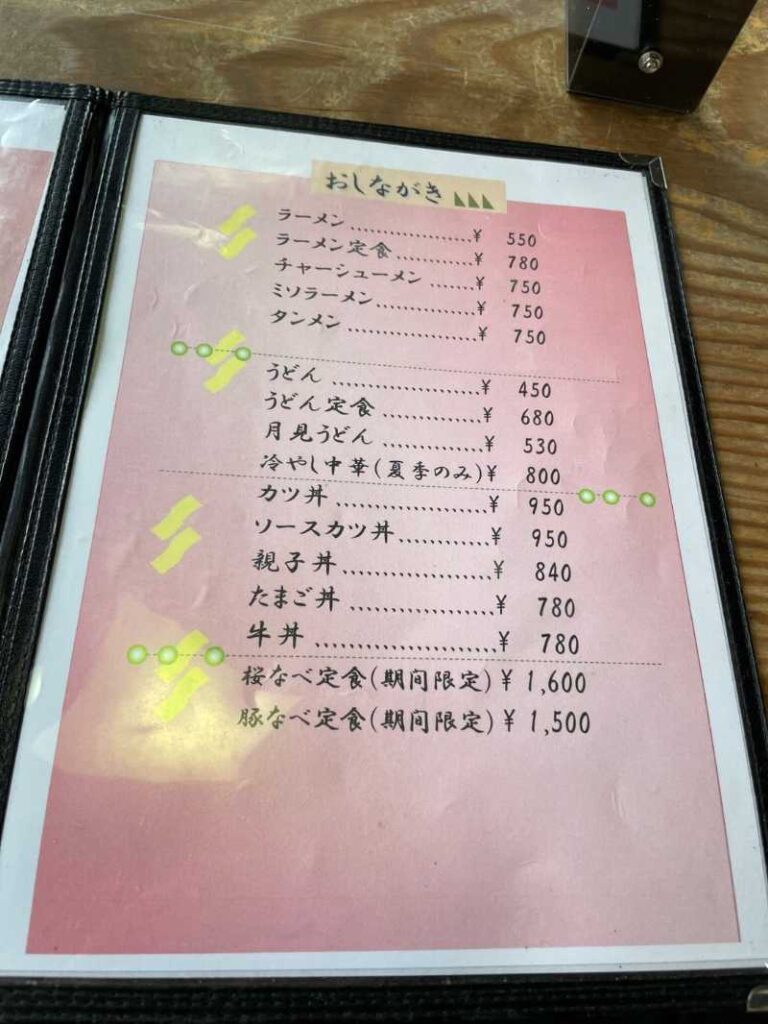 おしながき
ラーメン....................¥ 550
ラーメン定食............¥ 780
チャーシューメン.......¥ 750
ミソラーメン................¥ 750
タンメン.....................¥ 750
うどん........................¥ 450
うどん定食................¥ 680
月見うどん................¥ 530
冷やし中華(夏季のみ)¥ 800
カツ丼........................¥ 950
ソースカツ丼..............¥ 950
親子丼.......................¥ 840
たまご丼....................¥ 780
牛丼...........................¥ 780
桜なべ定食(期間限定)¥ 1,600
豚なべ定食(期間限定)¥ 1,500